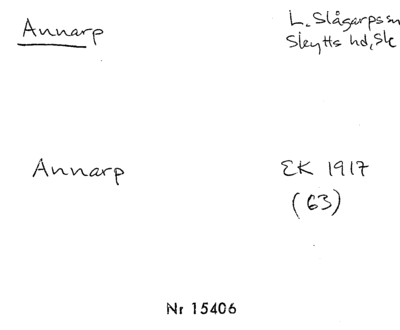 Annarp
L. Slågarps sn
Skytts hd, Sk
Annarp
EK 1917
(63)
Nr 15406